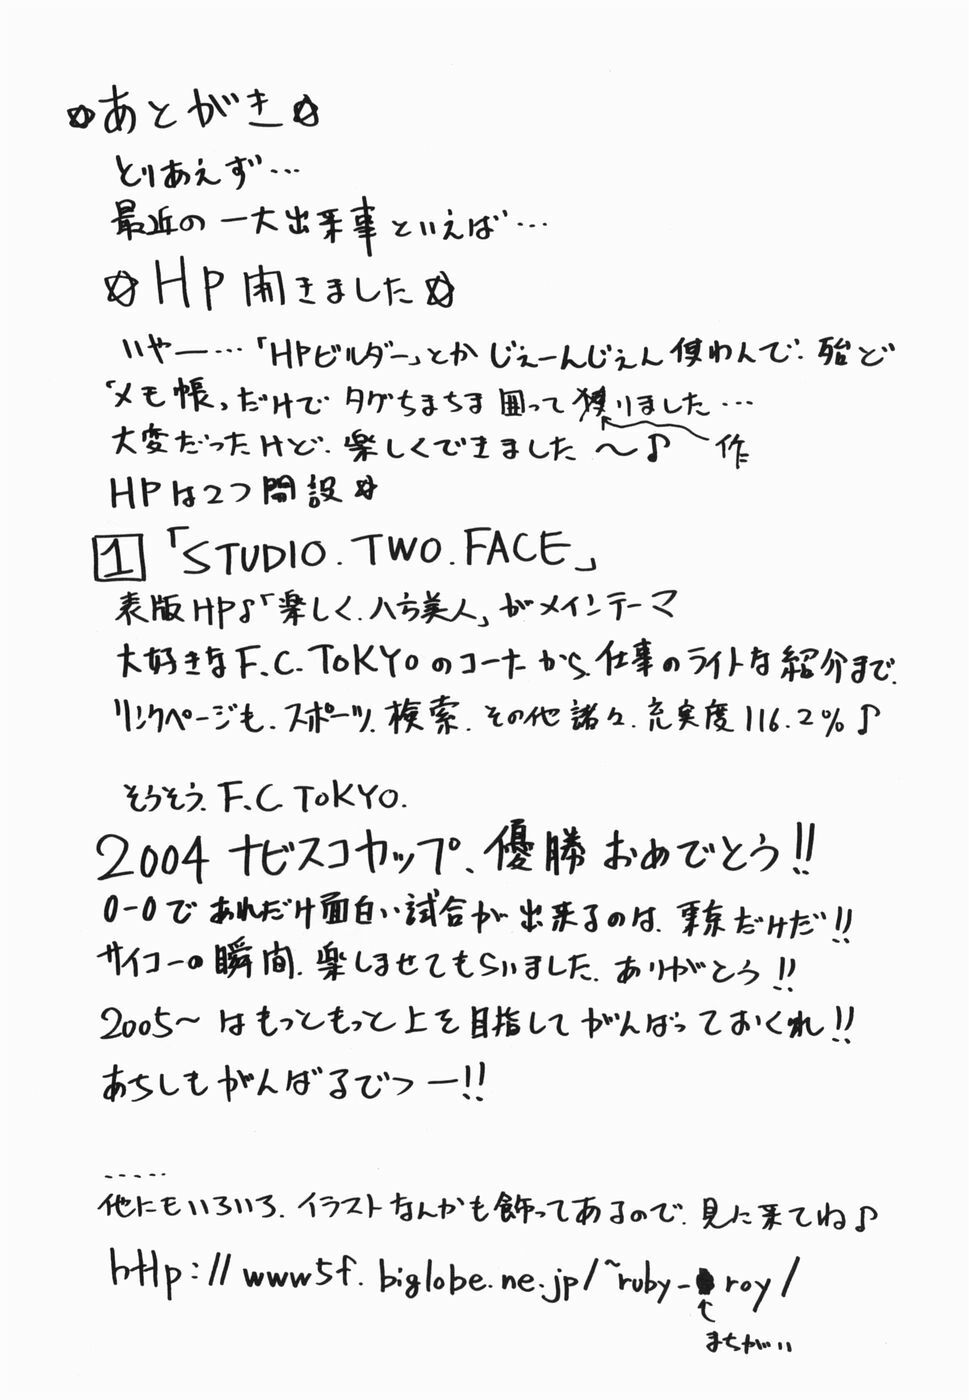 ☆あとがき☆
とりあえず…
最近の一大出来事といえば…
☆HP開きました☆
いやー…「HPビルダー」とかじぇーんじぇん使わんで、殆ど
「メモ帳」だけでタグちまちま囲って りました…
作
大変だったけど、楽しくできました～♪
HPは2つ開設☆
1「STUDIO.TWO.FACE」
表版HP♪「楽しく、八方美人」がメインテーマ
大好きなF.C.TOKYOのコーナから、仕事のライトな紹介まで、
リンクページも、スポーツ、検索、その他諸々、充実度116.2%♪
そうそう、F.C TOKYO.
2004ナビスコカップ、優勝おめでとう!!
0-0であれだけ面白い試合が出来るのは、東京だけだ!!
サイコーの瞬間、楽しませてもらいました、ありがとう!!
2005～はもっともっと上を目指してがんばっておくれ!!
あちしもがんばるでつー!!
.....
他にもいろいろ、イラストなんかも飾ってあるので、見に来てね♪
http://www5f.biglobe.ne.jp/~ruby_roy/
まちがい